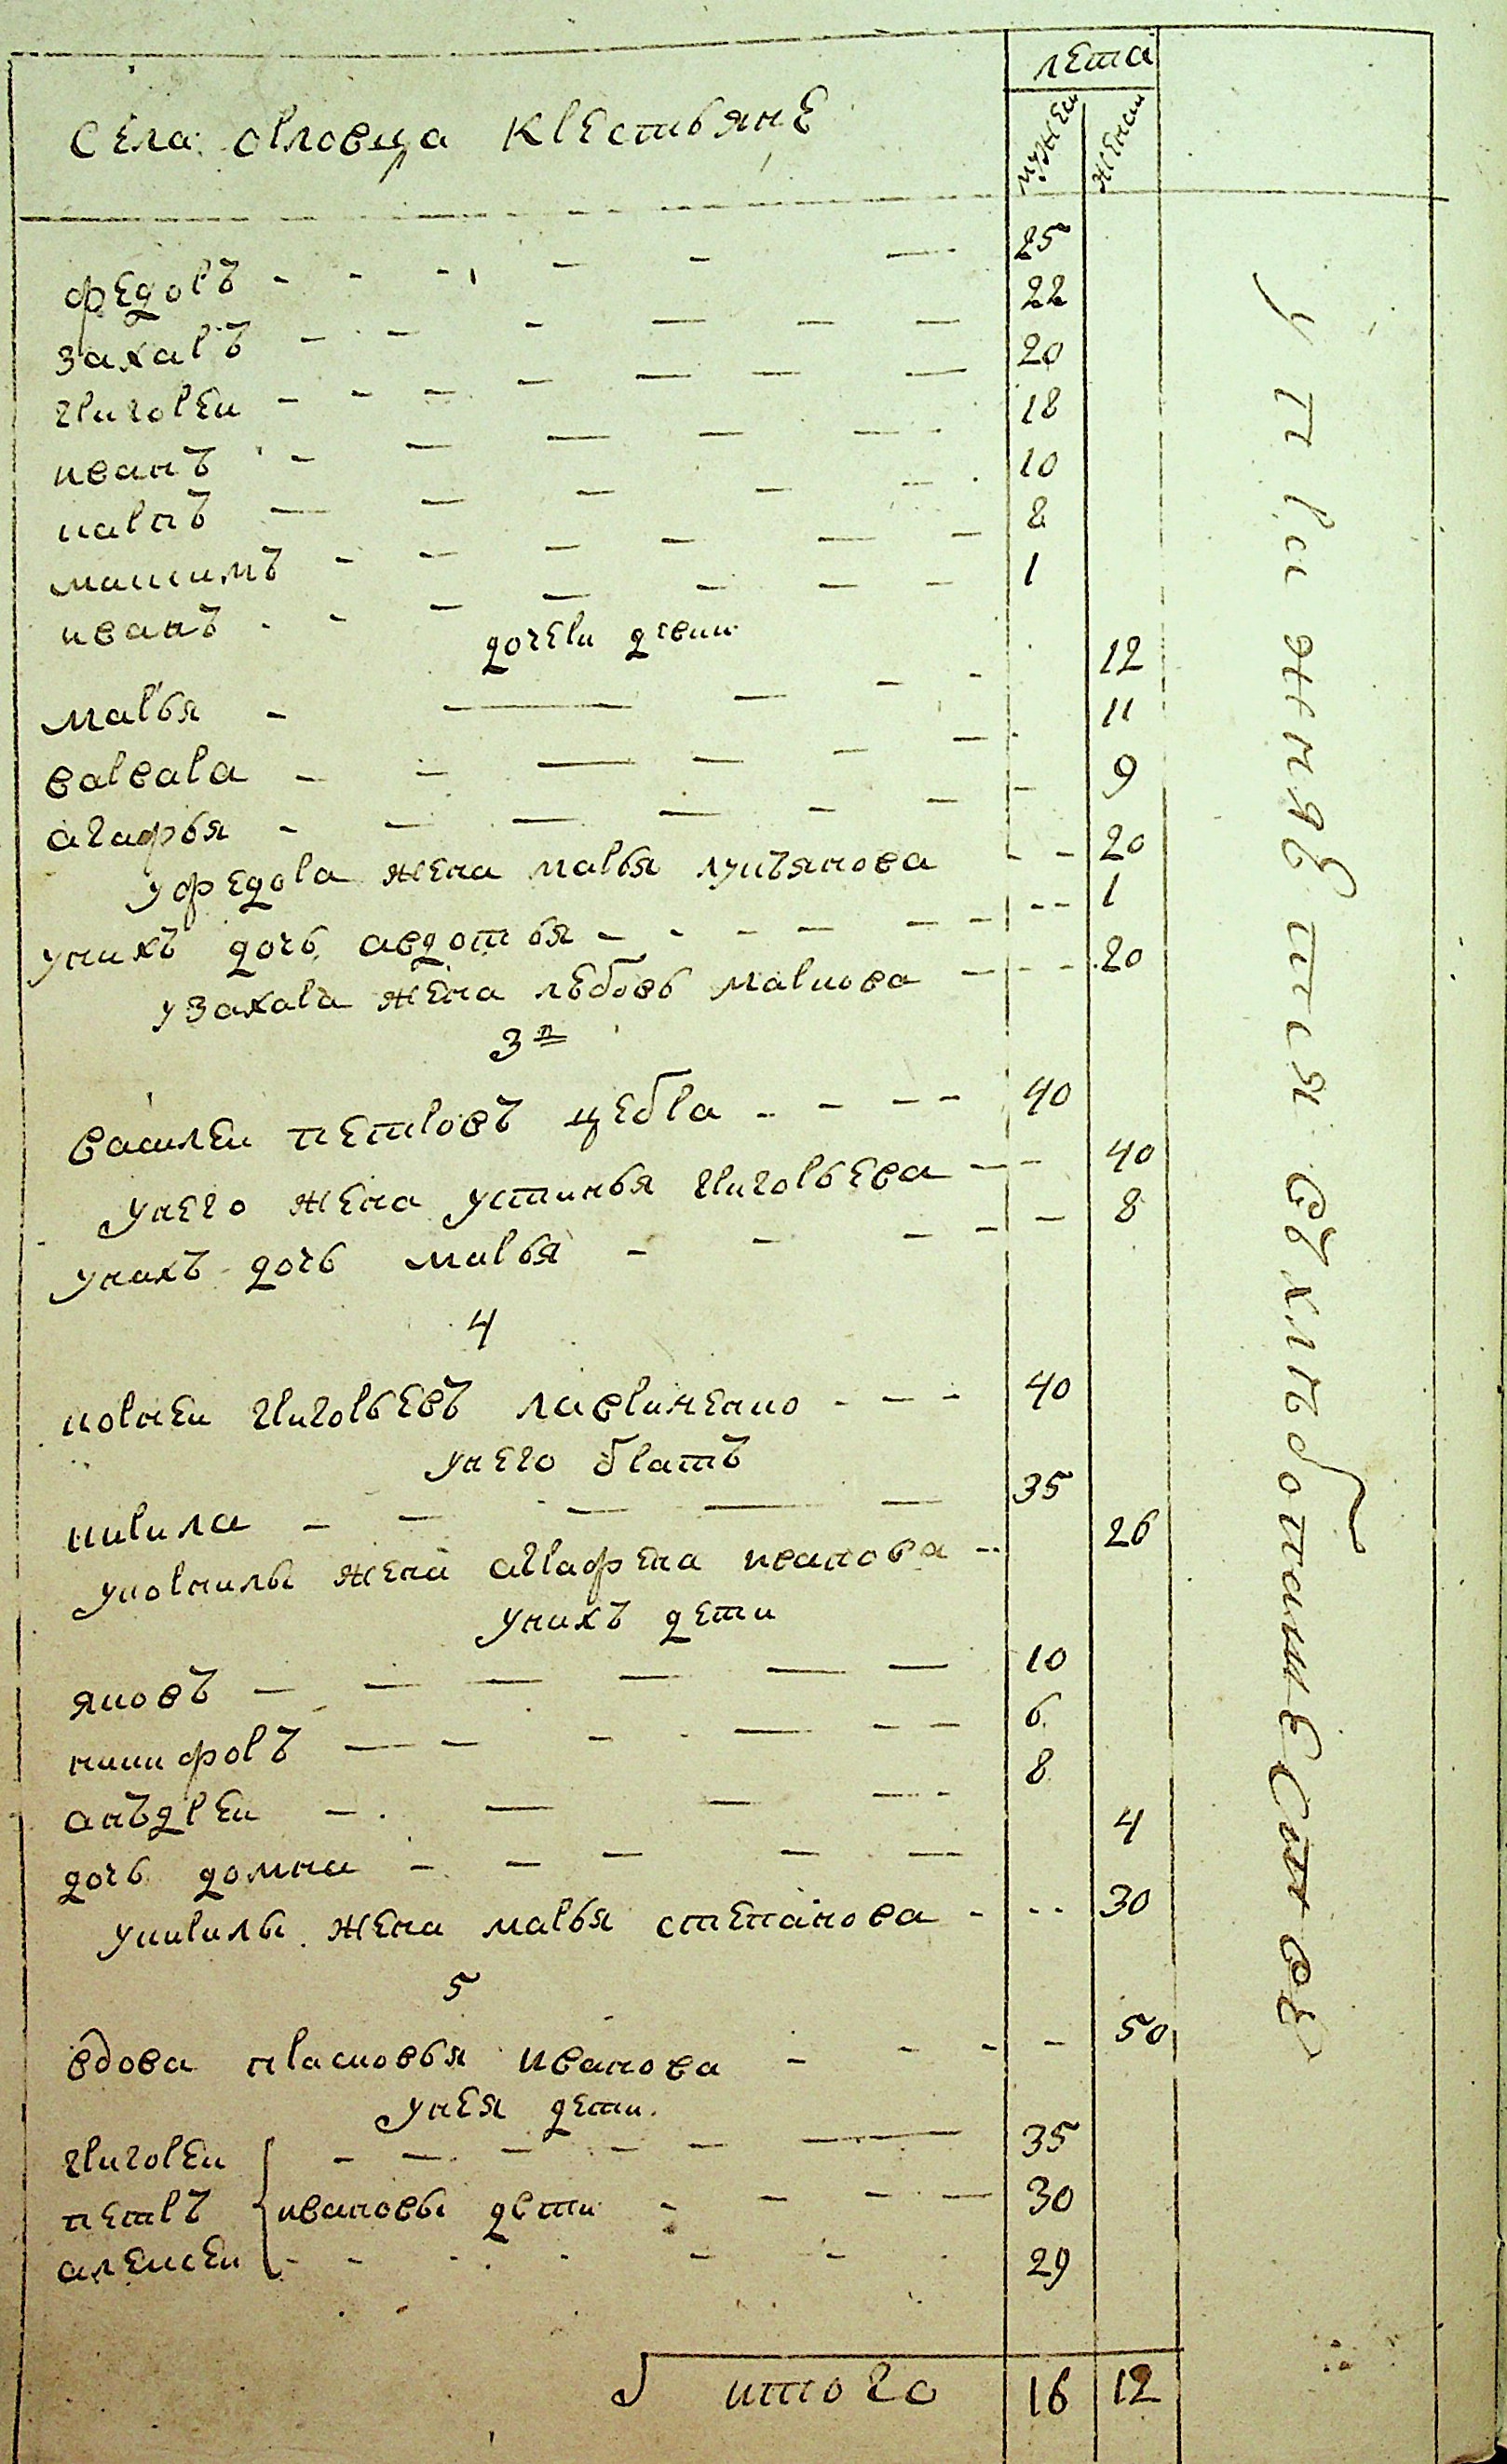 лета
Села орловца крестьяне
мужеи
женки
федоръ - - - - - - 25
захаръ - - - - - - 22
григореи - - - - - - - 20
иванъ - - - - - 18
карпъ - - - - - 10
максимъ - - - - - - 8
иванъ - - - - - - - 1
дочери девки
марья - - - - - 12
варвара - - - - - - 11
агафья - - - - - - - 9
уфедора жена марья лукъянова - - 20
унихъ дочь авдотья - - - - - - - - 1
узахара жена любовь маркова - - - 20
3 я
василеи петровъ цебра - - - - 40
унего жена устинья григорьева - - 40
унихъ дочь марья - - - - - 8
4
корнеи григорьевъ лавриненко - - - 40
унего братъ
кирила - - - - - 35
укорнилы жена аграфена иванова - - 26
унихъ дети
яковъ - - - - - - 10
никифоръ - - - - - - 6
анъдреи - - - - - 8
дочь домна - - - - - 4
укирилы жена марья степанова - - - 30
5
вдова прасковья иванова - - - - 50
унея дети
григореи - - - - - - 35
петръ ивановы дети - - - - 30
алексеи - - - - - - 29
итого 16 12
упражняется вхлебопашестве